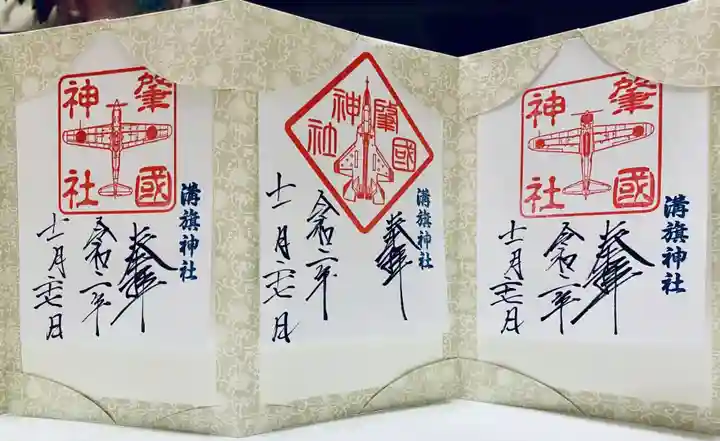 肇國神社
溝旗神社
奉拝
令和二年
十二月二七日
肇國神社
溝旗神社
奉拝
令和二年
十二月二七日
肇國神社
溝旗神社
奉拝
令和二年
十二月二七日